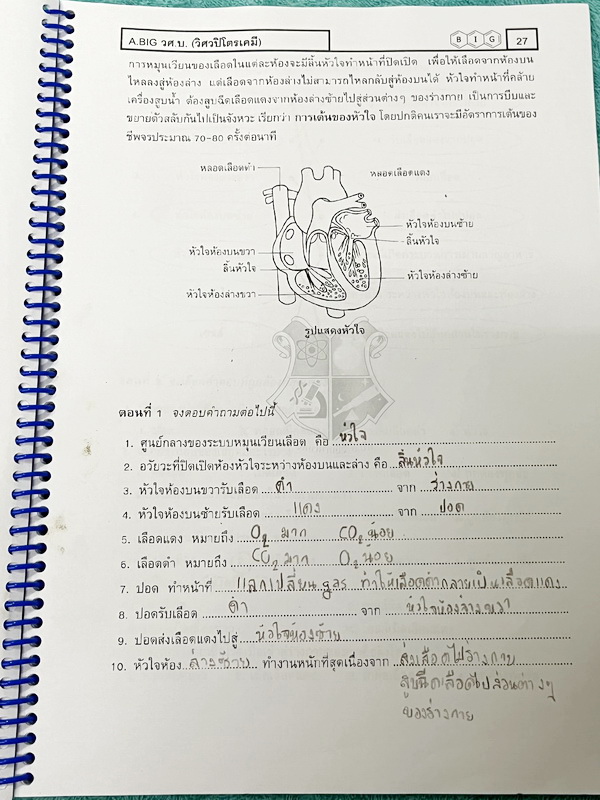 A.BIG วศ.บ. (วิศวปิโตรเคมี) B I G 27
การหมุนเวียนของเลือดในแต่ละห้องจะมีลิ้นหัวใจทำหน้าที่ปิดเปิด เพื่อให้เลือดจากห้องบน
ไหลลงสู่ห้องล่าง แต่เลือดจากห้องล่างไม่สามารถไหลกลับสู่ห้องบนได้ หัวใจทำหน้าที่คล้าย
เครื่องสูบน้ำ ต้องสูบฉีดเลือดแดงจากห้องล่างซ้ายไปสู่ส่วนต่างๆ ของร่างกาย เป็นการบีบและ
ขยายตัวสลับกันไปเป็นจังหวะ เรียกว่า การเต้นของหัวใจ โดยปกติคนเราจะมีอัตราการเต้นของ
ชีพจรประมาณ 70-80 ครั้งต่อนาที
หลอดเลือดดำ
หลอดเลือดแดง
หัวใจห้องบนซ้าย
ลิ้นหัวใจ
หัวใจห้องบนขวา
ลิ้นหัวใจ
หัวใจห้องล่างซ้าย
หัวใจห้องล่างขวา
รูปแสดงหัวใจ
ตอนที่ 1 จงตอบคำถามต่อไปนี้
1. ศูนย์กลางของระบบหมุนเวียนเลือด คือ หัวใจ
2. อวัยวะที่ปิดเปิดห้องหัวใจระหว่างห้องบนและล่าง คือ ลิ้นหัวใจ
3. หัวใจห้องบนขวารับเลือด ดำ จาก ร่างกาย
4. หัวใจห้องบนซ้ายรับเลือด แดง จาก ปอด
5. เลือดแดง หมายถึง O₂ มาก CO₂ น้อย
6. เลือดดำ หมายถึง CO₂ มาก O₂ น้อย
7. ปอด ทำหน้าที่ แลกเปลี่ยน gas ทำให้เลือดดำกลายเป็นเลือดแดง
8. ปอดรับเลือด ดำ จาก หัวใจห้องล่างขวา
9. ปอดส่งเลือดแดงไปสู่ หัวใจห้องซ้าย
10. หัวใจห้อง ล่างซ้าย ทำงานหนักที่สุดเนื่องจาก ส่งเลือดไปร่างกาย
สูบฉีดเลือดไปส่วนต่างๆ
ของร่างกาย